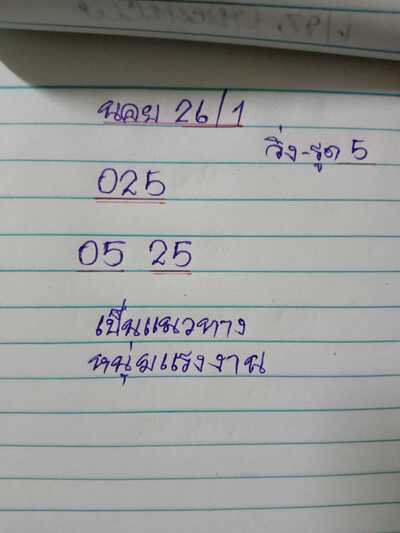 นอย 26/1
วิ่ง-รูด 5
025
05 25
เป็นแนวทาง
หนุ่มแรงงาน